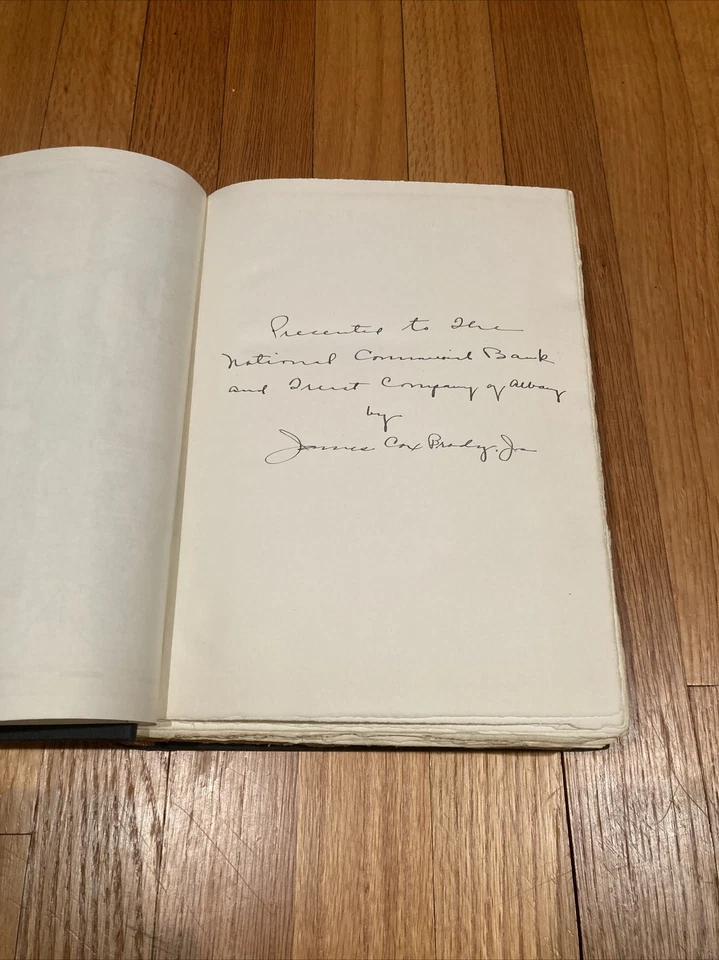 Presented to The
National Commercial Bank
and Trust Company of Albany
by
James Cox Brady, Jr